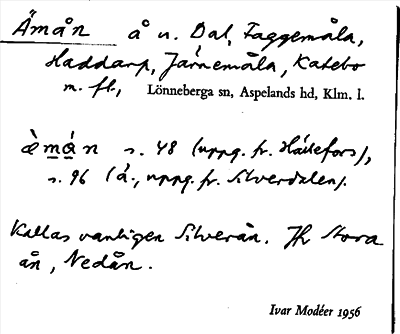 Åmån å n. Dal, Faggemåla,
Haddarp, Järnemåla, Katebo
m. fl., Lönneberga sn, Aspelands hd, Klm. l.
s. 48 (uppg. fr. Hällefors),
s. 96 (å., uppg. fr. Silverdalen).
Kallas vanligen Silverån. Jfr Stora
ån, Nedån.
Ivar Modéer 1956